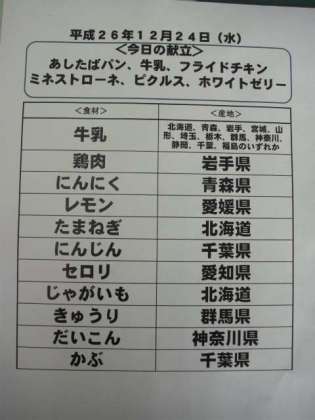 平成２６年１２月２４日（水）
＜今日の献立＞
あしたばパン、牛乳、フライドチキン
ミネストローネ、ピクルス、ホワイトゼリー
＜食材＞ ＜産地＞
牛乳 北海道、青森、岩手、宮城、山
形、埼玉、栃木、群馬、神奈川、
静岡、千葉、福島のいずれか
鶏肉 岩手県
にんにく 青森県
レモン 愛媛県
たまねぎ 北海道
にんじん 千葉県
セロリ 愛知県
じゃがいも 北海道
きゅうり 群馬県
だいこん 神奈川県
かぶ 千葉県